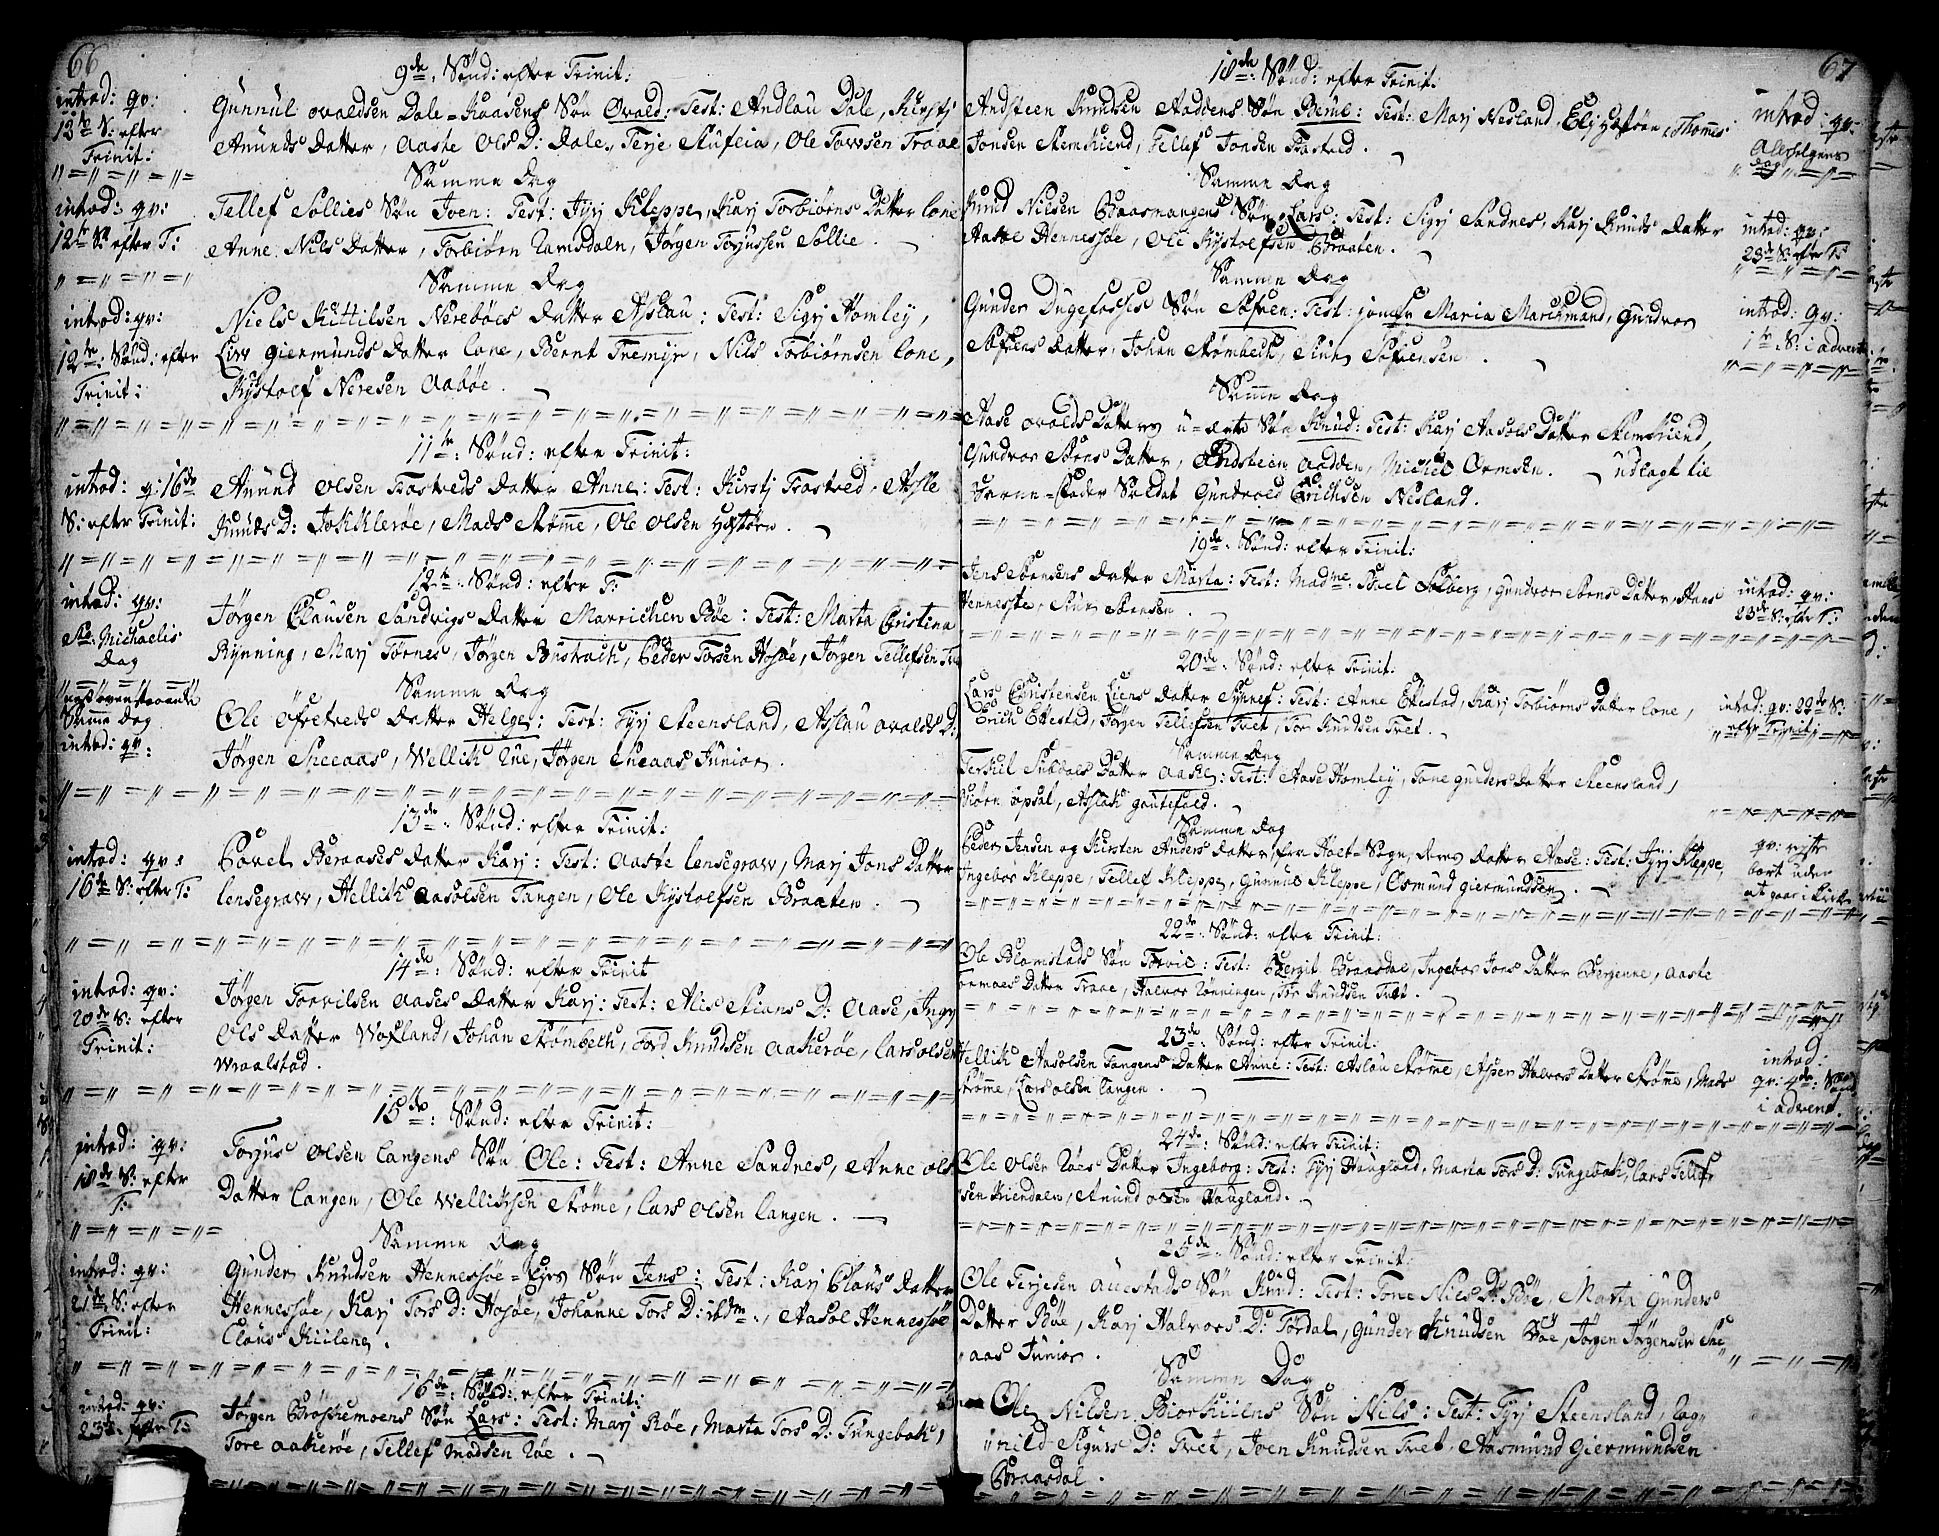 66
9de Sønd: efter Trinit:
introd: qv:
12te S: efter
Trinit:
Gunnul ovaldsen Dale-Kaasens Søn Ovald: Test: Andlau Dale, Kirstj
Anunds Datter, Aaste Ols D: Dale, Terje Stufeia, Ole Torvsen Traae
Samme Dag
introd: qv:
12te S: efter T:
Tellef Sollies Søn Joen: Test: Jyrj Kleppe, Karj Torbiørns Datter Lone
Anne Nils Datter, Torbiørn Ramsdaln, Jørgen Torjussen Sollie.
Samme Dag
introd: qv:
12te Sønd: efter
Trinit:
Niels Kittilsen Nerebøes Datter Aslau: Test: Sigrj Homley,
Liv Giermunds Datter Lone, Bernt Tremyr, Nils Torbiørnsen Lone,
Kystolf Neresen Aabøe.
11te Sønd: efter Trinit:
introd: q: 16de
S: efter Trinit:
Anund Olsen Trostveds Datter Anne: Test: Kirstj Trostved, Asle
Knuds D: Jokklerøe, Mads Strømme, Ole Olsen Hæstøen.
12te Sønd: efter T:
introd: qv:
St: Michaelis
Dag
Jørgen Clausen Sandvigs Datter Marrichen Bøe: Test: Marta Christina
Rynning, Marj Tørnes, Jørgen Bustrach, Peder Torsen Hosøe, Jørgen Tellefsen
Samme Dag
Samme Dag
introd: qv:
Ole Ofretveds Datter Helge: Test: Jyrj Steensland, Aslau Ovalds D:
Jørgen Sneeaas, Wellick Rue, Jørgen Sneaas Junior.
13de Sønd: efter Trinit:
introd: qv:
16de S: efter T:
Povel Beraases Datter Karj: Test: Aaste Lensegrav, Marj Jons Datter
Lensegrav, Hellik Aasolsen Tangen, Ole Kystolfsen Braaten.
14de Sønd: efter Trinit
introd: qv:
20de S: efter
Trinit:
Jørgen Torvilsen Aases Datter Karj: Test: Alis Stians D: Aase, Ingrj
Ols Datter Woxland, Johan Strømbech, Tord Knudsen Aakerøe, Lars Olsen
Wraalstad.
15de Sønd: efter Trinit:
introd: qv:
18de S: efter
T:
Torjus Olsen Langens Søn Ole: Test: Anne Sandnes, Anne Ols
Datter Langen, Ole Wellicksen Strøme, Lars Olsen Langen.
Samme Dag
introd: qv:
21de S: efter
Trinit:
Gunder Knudsen Hennessøe- Søn Jens: Test: Karj Claus Datter
Hennessøe, Karj Tors D: Hosøe, Johanne Tors D: ibdm:, Aasol Hennessøe
Claus Kiilene.
16de Sønd: efter Trinit:
introd: qv:
23de efter T:
Jørgen Brøskemoens Søn Lars: Test: Marj Røe, Marta Tors D: Tungebak,
Tore Aakerøe, Tellef Madsen Røe.
67
18de Sønd: efter Trinit:
Andsteen Knudsen Aaddens Søn Berul: Test: Marj Nesland, Elj Hæstøen, Thommes
Jonsen Stemkiend, Tellef Jonsen Trostved.
introd: qv:
Allehelgens
dag
Samme Dag
Knud Nilsen Baasmangens Søn Lars: Test: Sigrj Sandnes, Karj Knuds Datter
Aasol Hennessøe, Ole Kystolfsen Braaten.
introd: qv:
23de S: efter T:
Samme Dag
Gunder Dugefosses Søn Søfren: Test: jomfr Maria Marchmand, Gundvor
Søfrens Datter, Johan Strømbech, Søfrensen.
introd: qv:
1te S: i advent
Samme Dag
Aase Ovalds Datters u-ægte Søn Knud: Test: Karj Aasols Datter Stemkiend,
Gundvor Sørns Datter, Andsteen Aadden, Michel Ormsen. udlagt til
Barne-Fader Soldat Gundvold Erichsen Nesland.
19de Sønd: efter Trinit:
Jens Sørensens Datter Marta: Test: Madme Boel Solberg, Gundvor Sørns Datter, Hans
Hennessøe, Sørensen.
introd: qv:
23de S: efter T:
20de Sønd: efter Trinit:
Lars Christensen Liens Datter Synnef: Test: Anne Ekestad, Karj Torbiørns Datter Lone,
Erich Ekestad, Jørgen Tellefsen Tvet, Tor Knudsen Tvet.
introd: qv: 22de S:
efter Trinit
Samme Dag
Terkel Subdals Datter Aaste: Test: Aase Homley, Tone Gunders Datter Steensland,
Biørn Opsal, Aslak Goutefald.
Samme Dag
Peder Jensen og Kirsten Anders Datter, fra Holt-Sogn, deres Datter Aase: Test: Jyrj Kleppe,
Ingebor Kleppe, Tellef Kleppe, Gunnul Kleppe, Osmund Giermundsen.
qv: reyste
bort uden
at gaae i Kirke
22de Sønd: efter Trinit:
Ole Blomstads Søn Torvil: Test: Bergit Braasdal, Ingebor Jons Datter Berjenne, Aaste
Ormoes Datter Traae, Halvor Rønningen, Tor Knudsen Tvet.
23de Sønd: efter Trinit:
Hellick Aasolsen Tangens Datter Anne: Test: Aslau Strømme, Asper Halvors Datter Strømme, Mads
Strømme, Lars Olsen Langen
introd:
qv: 4de Sønd
i advent.
24de Sønd: efter Trinit:
Ole Olsen Røes Datter Ingeborg: Test: Jyrj Haugland, Marta Tors D: Tungebak, Lars Tellef
sen Kiendaln, Anund Olsen Haugland.
25de Sønd: efter Trinit:
Ole Terjesen Auestads Søn Knud: Test: Tone Niels D: Bøe, Marta Gunders
Datter Bøe, Karj Halvors D: Tørdal, Gunder Knudsen Bøe, Jørgen Jørgensen Sne
aas Junior.
Samme Dag
Ole Nilsen Biorkiilens Søn Nils: Test: Jyrj Steensland, Rag
nild Sigurs D: Tvet, Joen Knudsen Tvet, Aasmund Giermundsen
Braasdal.